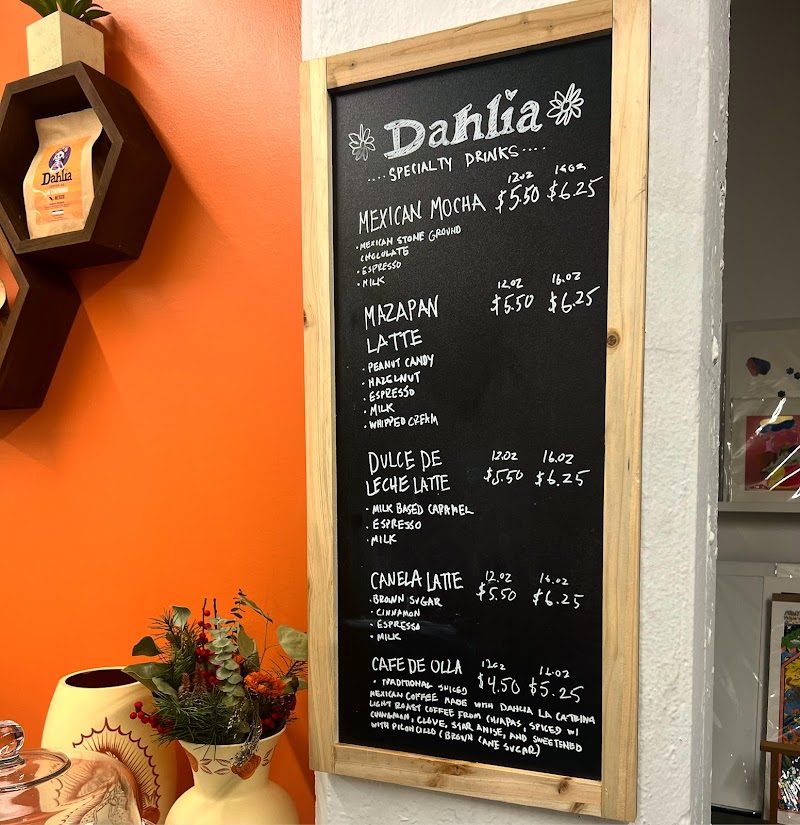 Dahlia
LA CATRINA
MEXICO
Dahlia
....SPECIALTY DRINKS....
12oz 16oz
MEXICAN MOCHA $5.50 $6.25
• MEXICAN STONE GROUND
CHOCOLATE
• ESPRESSO
• MILK
12oz 16oz
MAZAPAN $5.50 $6.25
LATTE
• PEANUT CANDY
• HAZELNUT
• ESPRESSO
• MILK
• WHIPPED CREAM
12oz 16oz
DULCE DE $5.50 $6.25
LECHE LATTE
• MILK BASED CARAMEL
• ESPRESSO
• MILK
12oz 16oz
CANELA LATTE $5.50 $6.25
• BROWN SUGAR
• CINNAMON
• ESPRESSO
• MILK
12oz 16oz
CAFE DE OLLA $4.50 $5.25
• TRADITIONAL SPICED
MEXICAN COFFEE MADE WITH DAHLIA LA CATRINA
LIGHT ROAST COFFEE FROM CHIAPAS, SPICED W/
CINNAMON, CLOVE, STAR ANISE, AND SWEETENED
WITH PILONCILLO (BROWN CANE SUGAR)